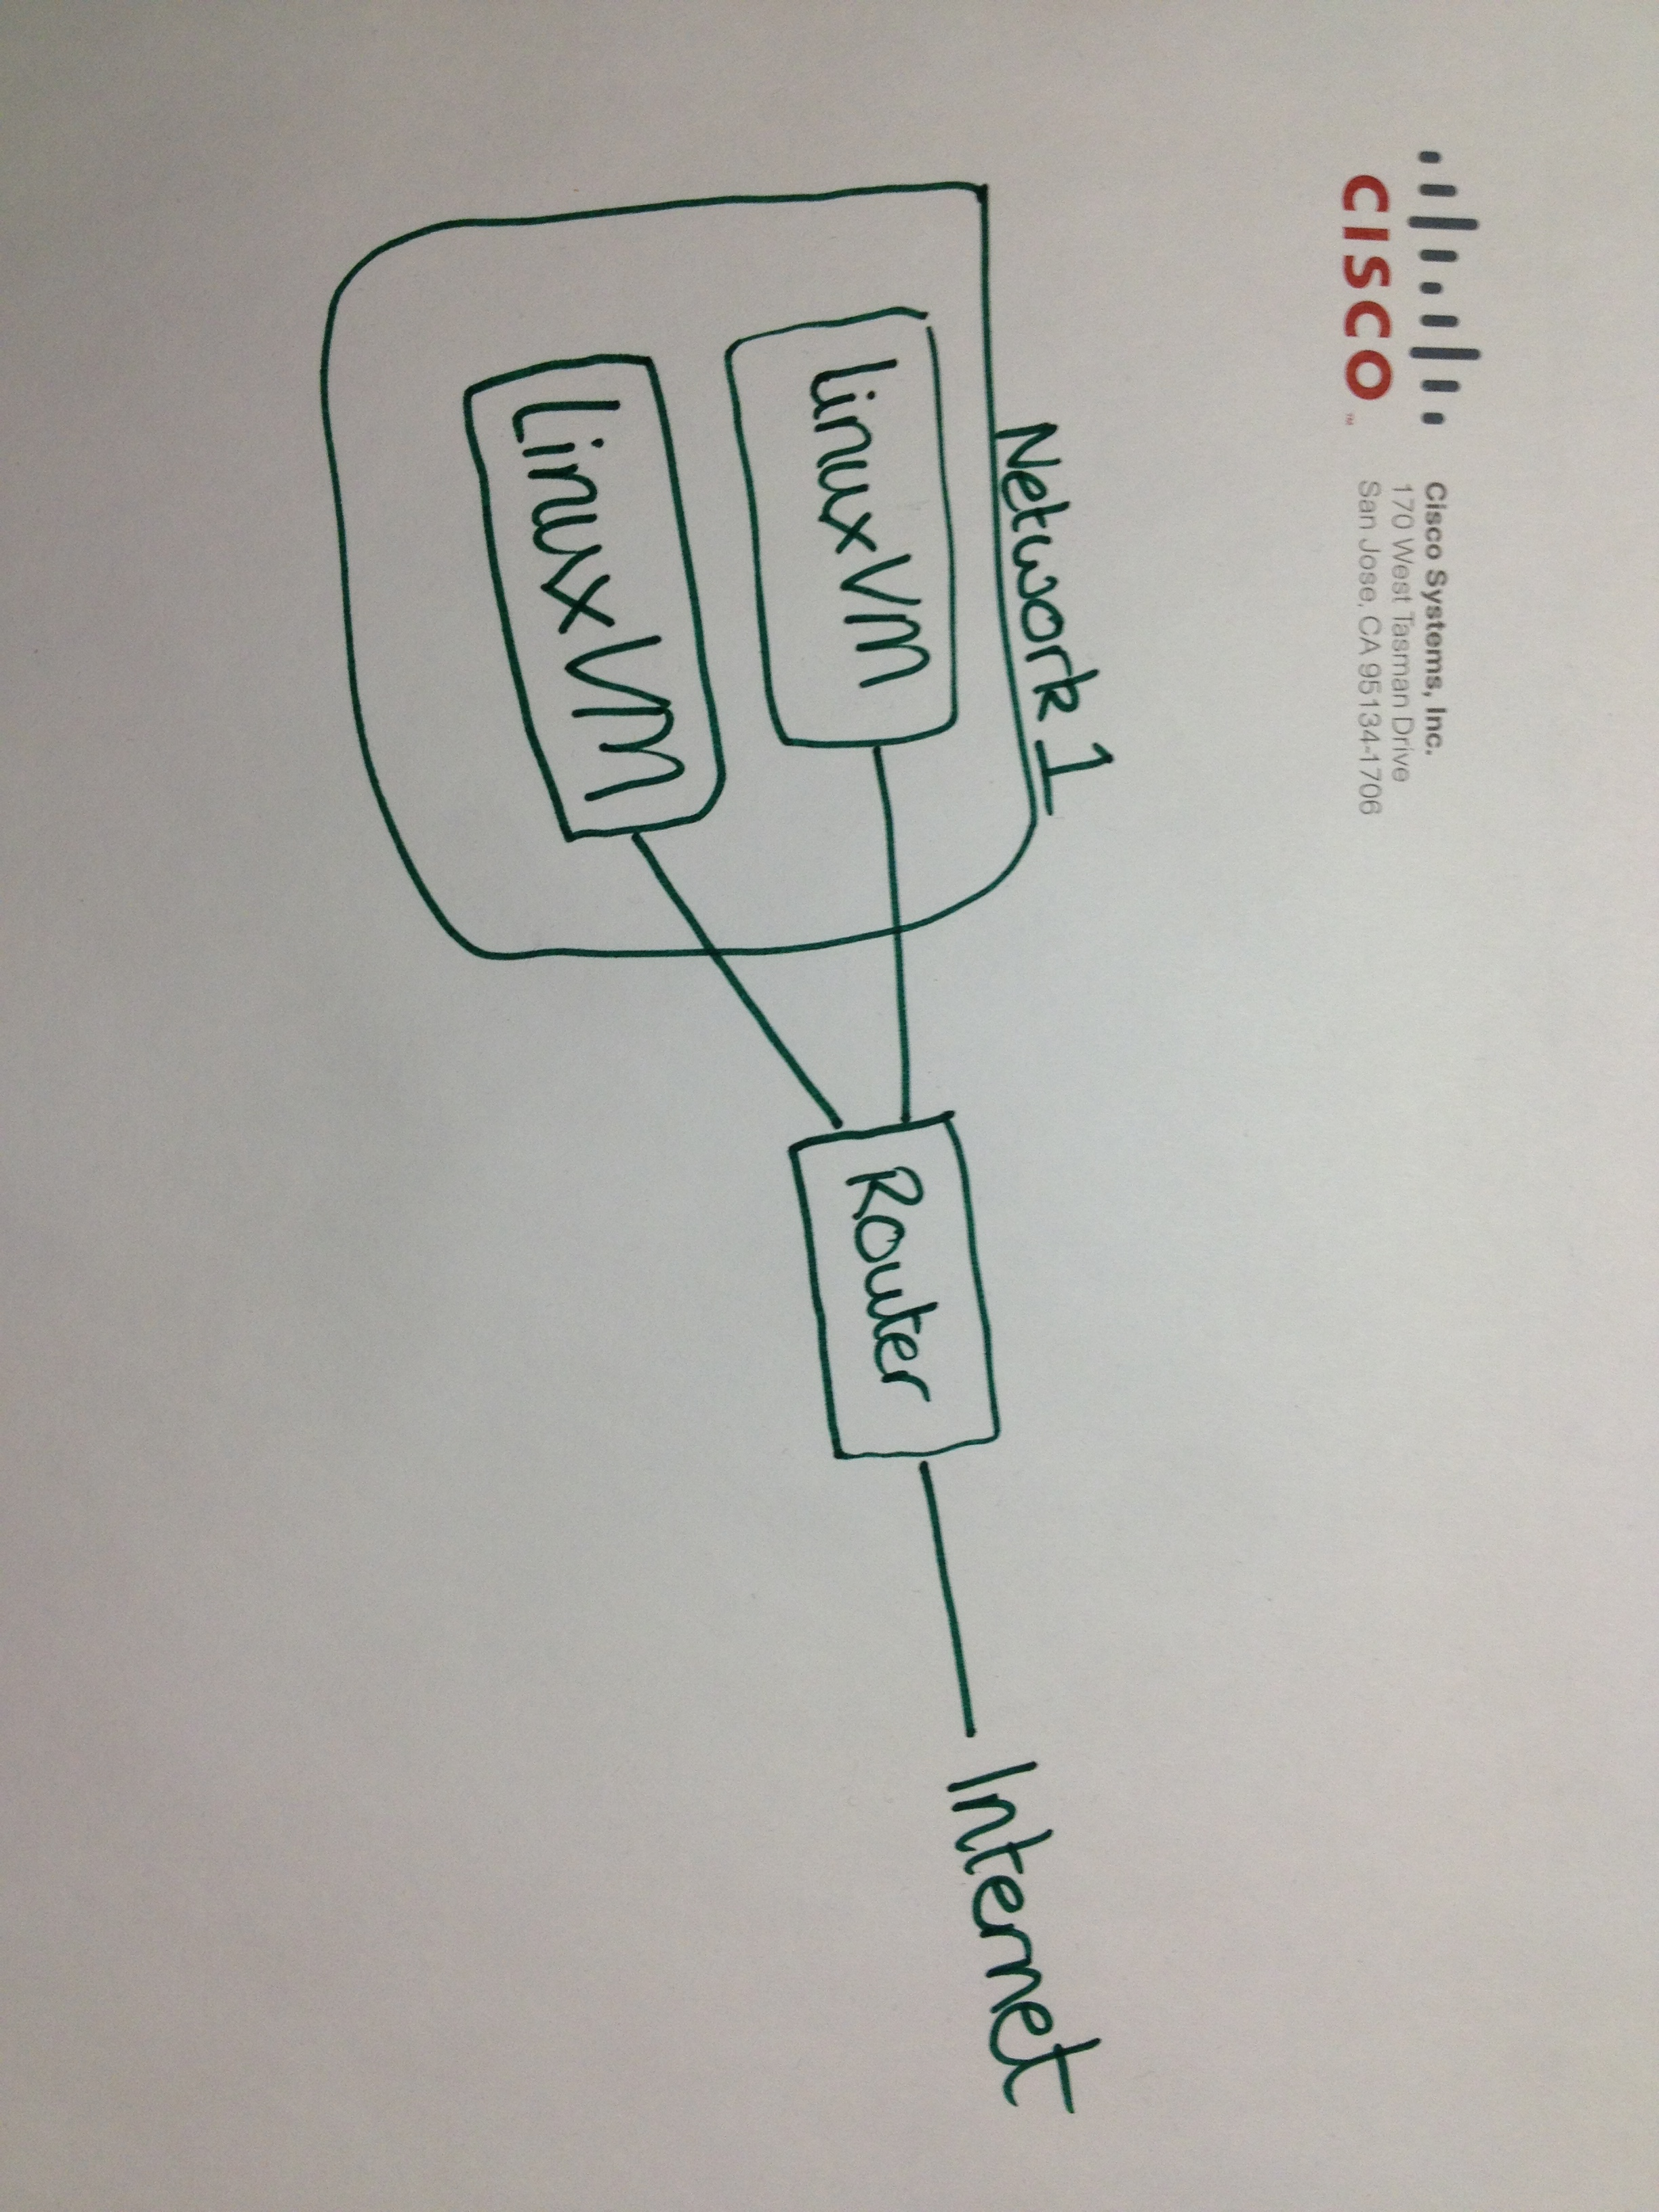 CISCO™
Cisco Systems, Inc.
170 West Tasman Drive
San Jose, CA 95134-1706
Network 1
Linux VM
Linux VM
Router
Internet